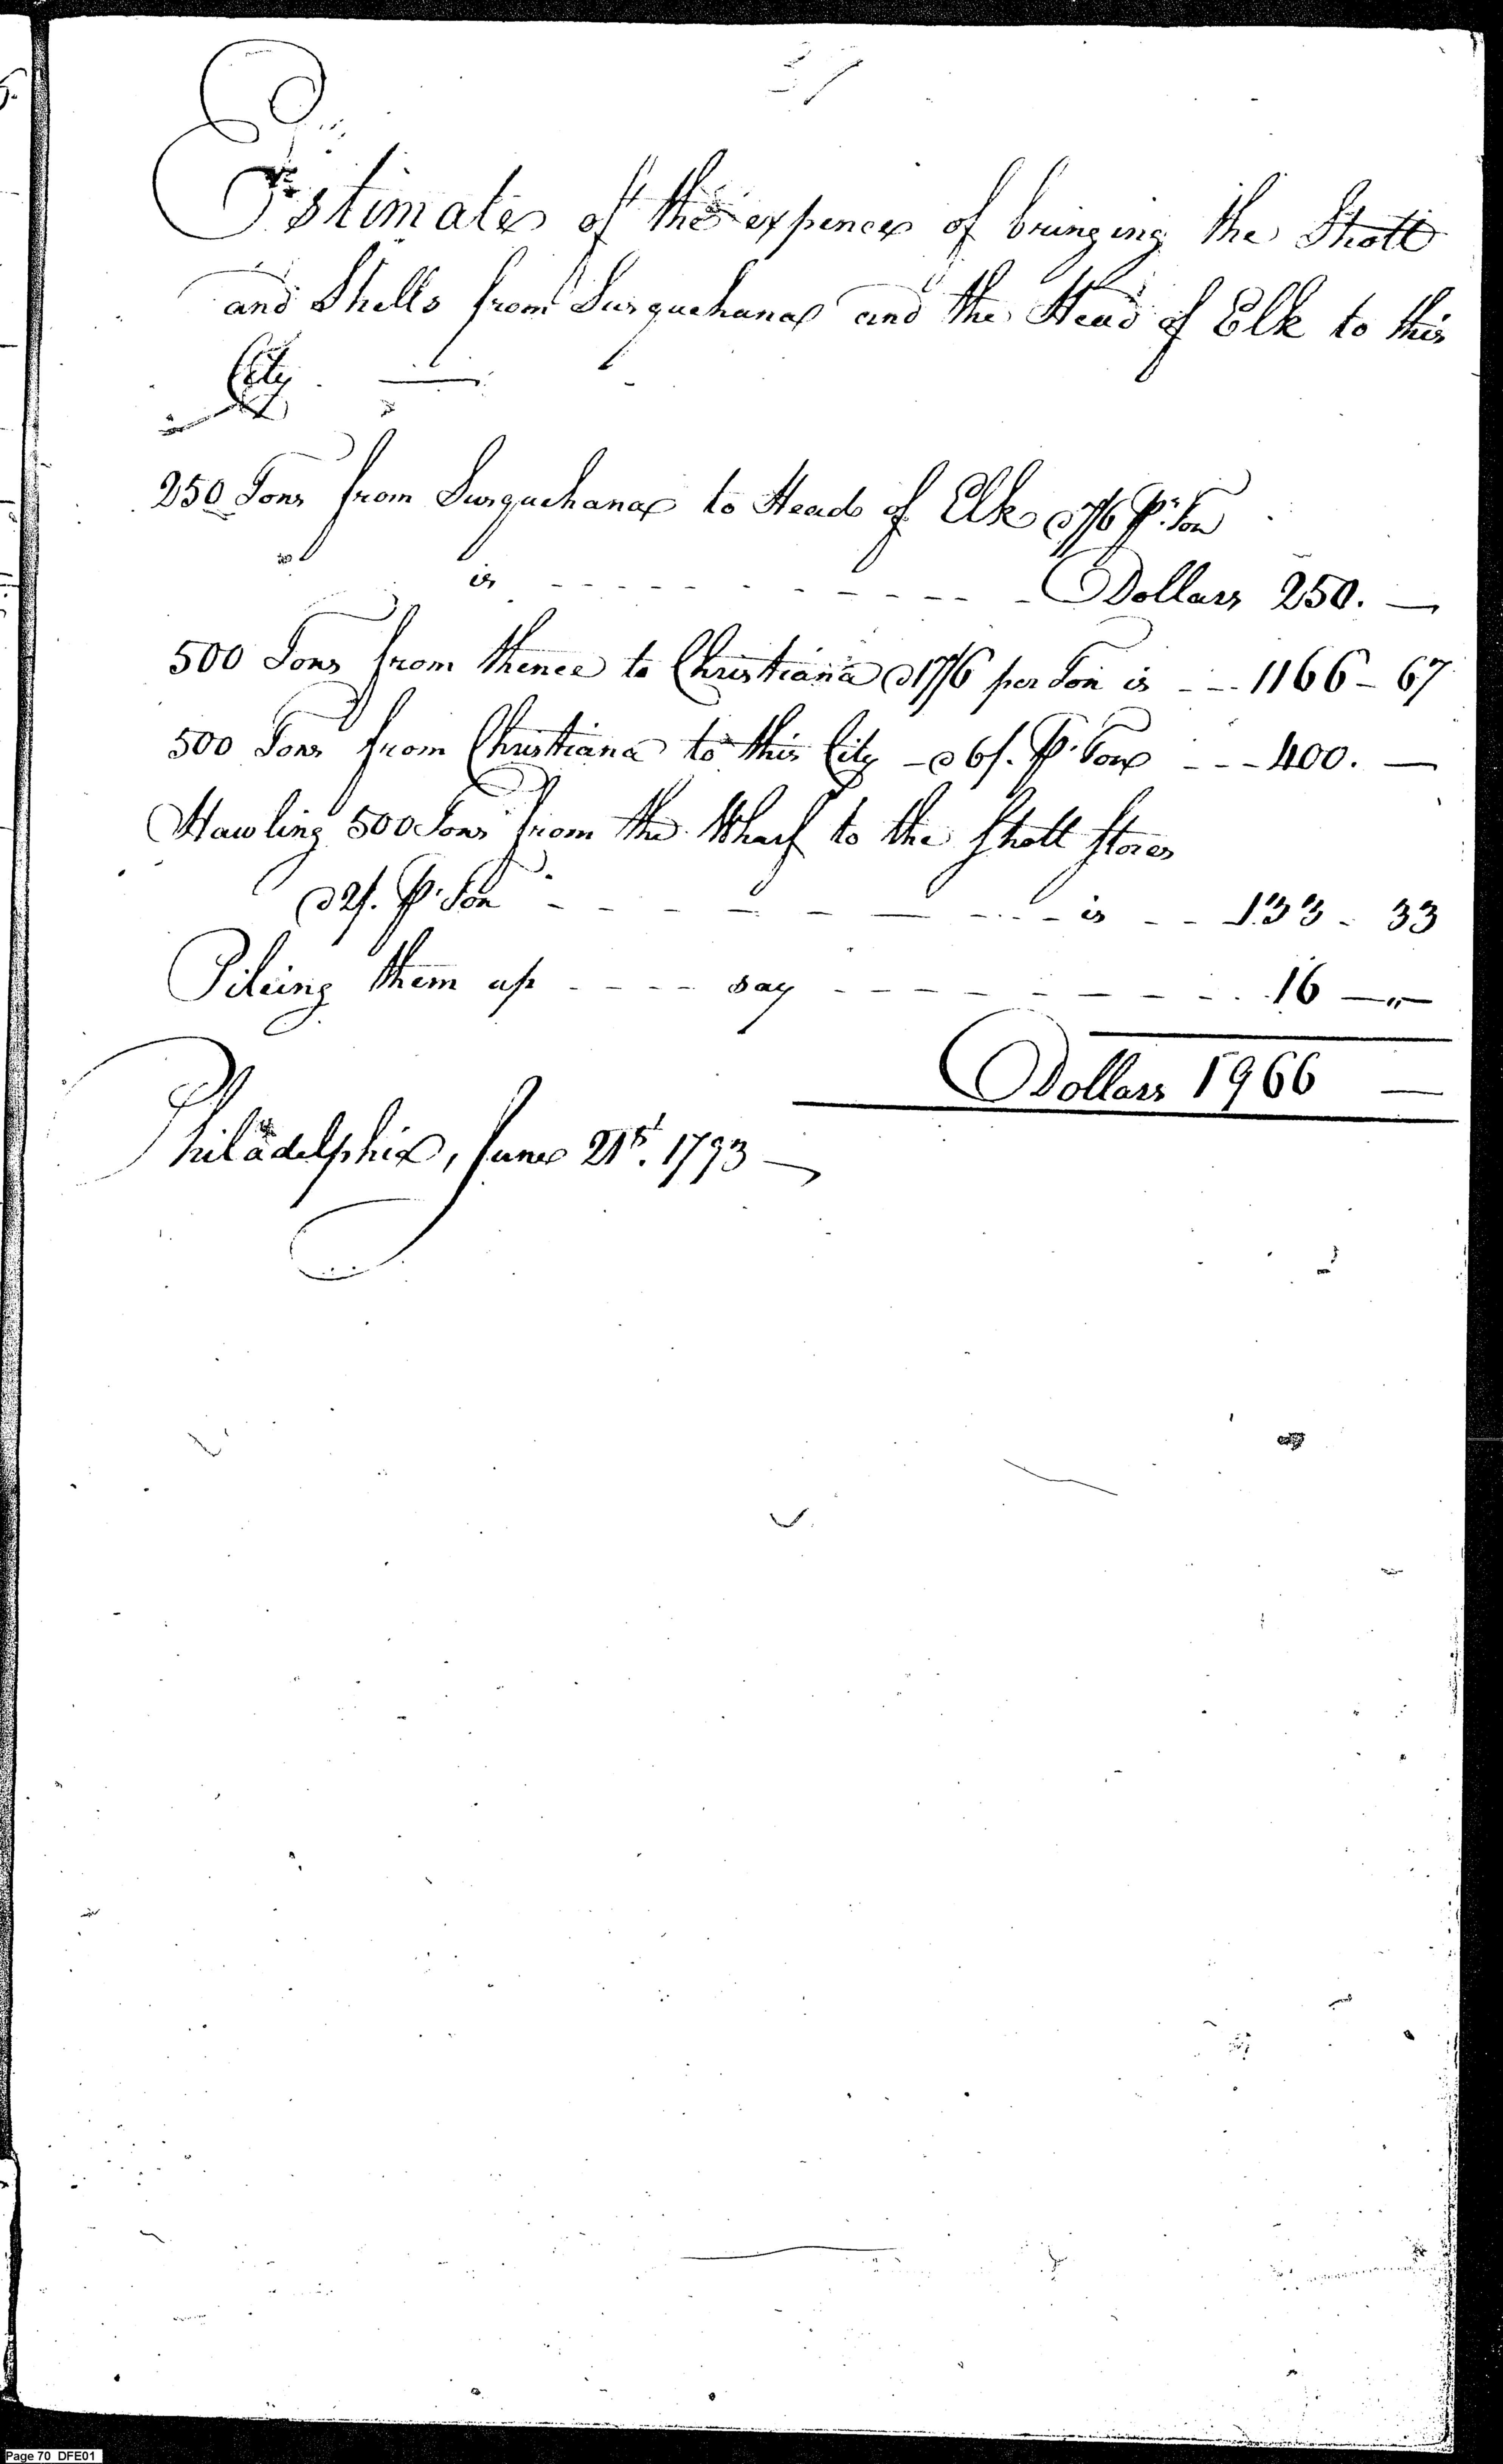 37
Estimate of the expence of bringing the Shott
and Shells from Susquehana and the Head of Elk to this
City. —
250 Tons from Susquehana to Head of Elk @ 7/6 Pr. Ton
is - - - - - - - - - - - Dollars 250. —
500 Tons from thence to Christiana @ 17/6 per Ton is - - - 1166 - 67
500 Tons from Christiana to this City - @ 6/. Pr. Ton - - - 400. —
Hawling 500 Tons from the Wharf to the Shott Stores
@ 2/. Pr. Ton - - - - - - - - - is - - 133 - 33
Pileing them up - - - - say - - - - - - - - - 16 — „ —
Dollars 1966 —
Philadelphia, June 21st. 1793 —
Page 70 DFE01